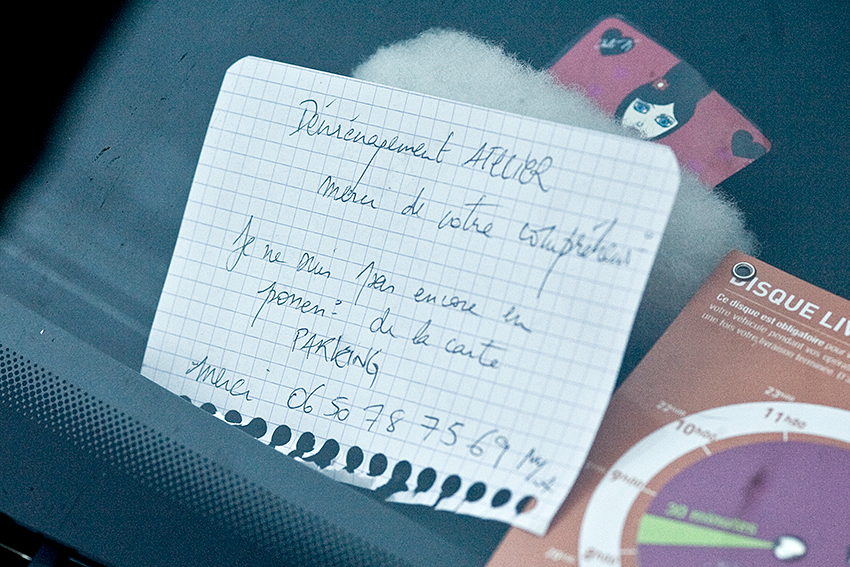 Déménagement ATELIER
Merci de votre compréhension
Je ne suis pas encore en
possen: de la carte
PARKING
Merci 06 50 78 75 69
DISQUE LIV
Ce disque est obligatoire pour
votre véhicule pendant vos
une fois votre livraison terminée.
23h00
22h00
11h00
10h00
9h00
30 minutes